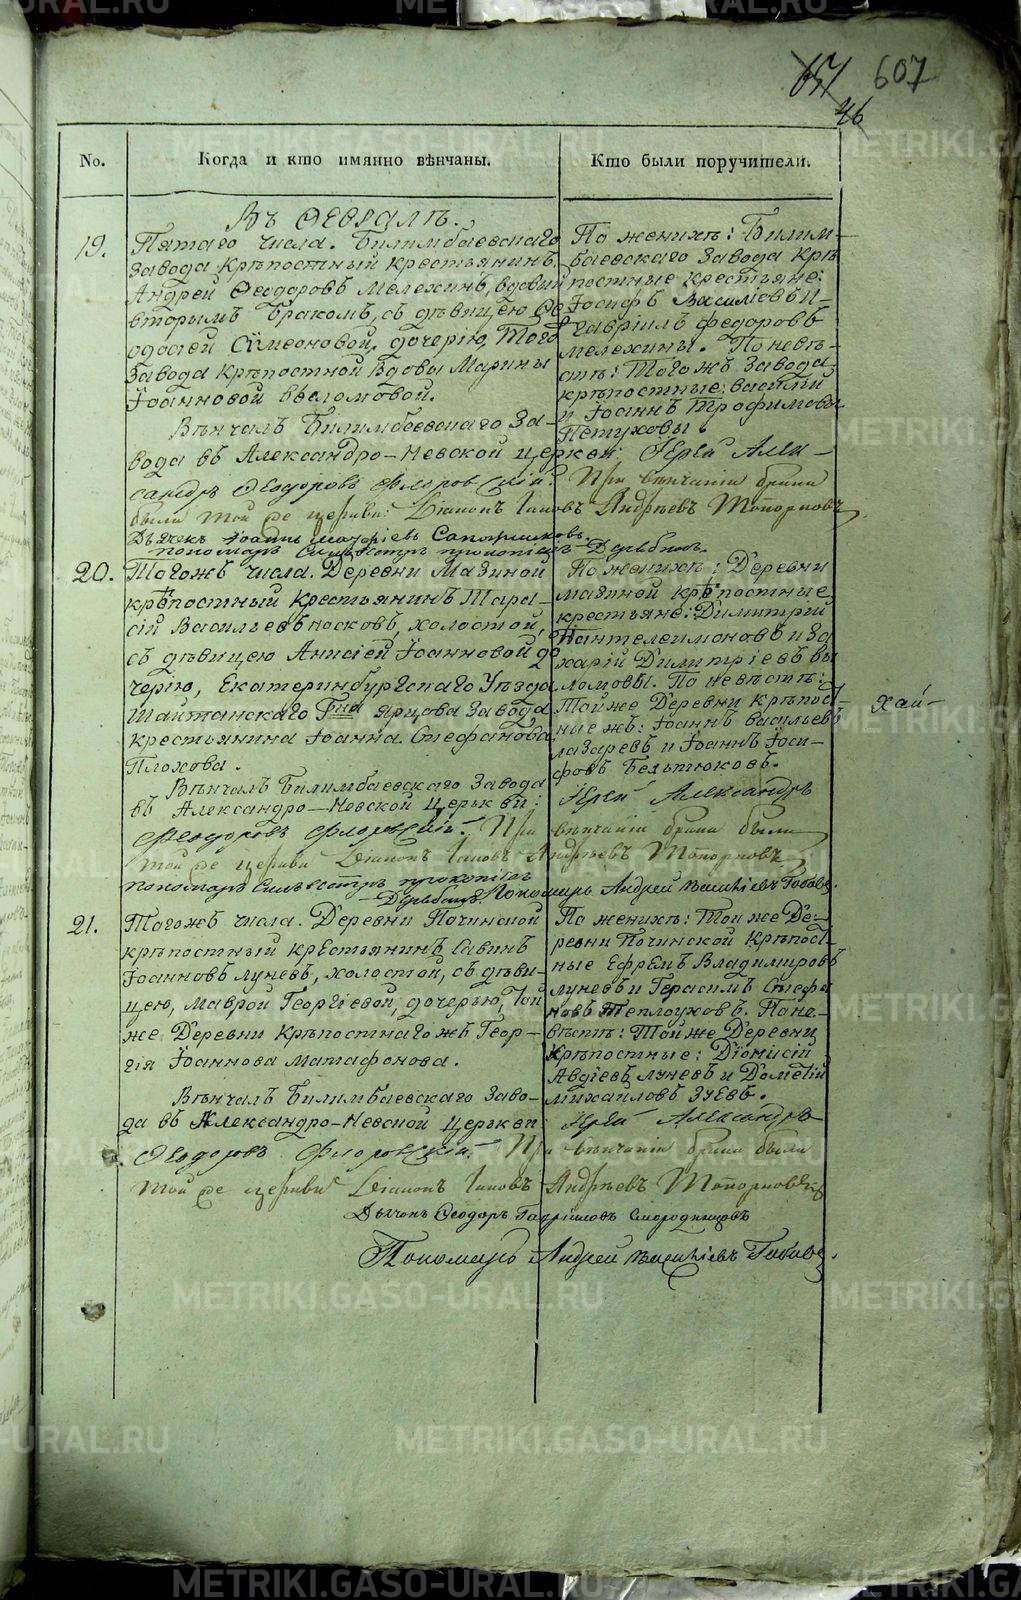 657 607
46
No. Когда и кто имянно вѣнчаны. Кто были поручители.
Въ Февралѣ.
19. Пятаго числа. Билимбаевскаго
завода крѣпостный крестьянинъ
Андрей Ѳеодоровъ Мелехинъ, вдовый
вторымъ бракомъ, съ дѣвицею Ѳе-
одосіей Сѵмеоновой, дочерію, того
завода крѣпостной вдовы Марины
Іоанновой
По женихѣ: Билим-
баевскаго завода крѣ-
постные крестьяне:
Іосифъ Василіевъ и
Гавріилъ Федоровъ
Мелехины. По невѣ-
стѣ: Тогожъ завода
крѣпостные: Василій
и Іоаннъ Трофимовы
Петуховы.
Вѣнчалъ Билимбаевскаго за-
вода въ Александро-Невской церкви: Іерей Алек-
сандръ Ѳеодоровъ Флоровскій. При вѣнчаніи брака
были той же церкви: Діаконъ Іаковъ Андрѣевъ Топорковъ
Дьячек Іоаннъ Сапожниковъ.
пономарь Силвестръ прокопіевъ Дерябинъ.
20. Тогожъ числа. Деревни Мазиной
крѣпостный крестьянинъ Тара-
сій Васильевъ Носковъ, холостой,
съ дѣвицею Анисіей Іоанновой до
черію, Екатеринбургскаго Уѣзда
Шайтанскаго Гна Ярцова завода,
крестьянина Іоанна Стефанова
Плохова.
По женихѣ: Деревни
мазиной крѣпостные
крестьяне: Димитрій
Пантелеимоновъ и За
харій Димитріевъ Вы
ломовы. По невѣстѣ:
Той же Деревни крѣпост
ные жъ: Іоаннъ Васильевъ
Лазаревъ и Іоаннъ Іоси-
фовъ Бельтюковъ.
Хай-
Вѣнчалъ Билимбаевскаго завода
въ Александро-Невской церькви: Іерей Александръ
Ѳеодоровъ Флоровскій. При вѣнчаніи брака были
той же церкви Діаконъ Іаковъ Андрѣевъ Топорковъ
пономарь Силвестръ прокопіевъ
Дерябинъ. Пономарь Андрей Василіевъ
21. Тогожъ числа. Деревни Починской
крѣпостный крестьянинъ Савинъ
Іоанновъ Луневъ, холостой, съ дѣви-
цею, Маврой Георгіевой, дочерью, той
же Деревни крѣпостнагожъ Геор-
гія Іоаннова Матафонова.
По женихѣ: Той же Де-
ревни Починской крѣпост-
ные Ефремъ Владимировъ
Луневъ и Герасимъ Стефа
новъ Теплоуховъ. По не-
вѣстѣ: Той же Деревни
Крѣпостные: Діонисій
Авдіевъ Луневъ и Дометій
Михаиловъ Зуевъ.
Вѣнчалъ Билимбаевскаго заво-
да въ Александро-Невской церькви Іерей Александръ
Ѳеодоровъ Флоровскій. При вѣнчаніи брака были
той же церкви Діаконъ Іаковъ Андрѣевъ Топорковъ
Дьячекъ Ѳеодоръ Гавріиловъ Смородинцовъ
Пономарь Андрей Василіевъ
METRIKI.GASO-URAL.RU